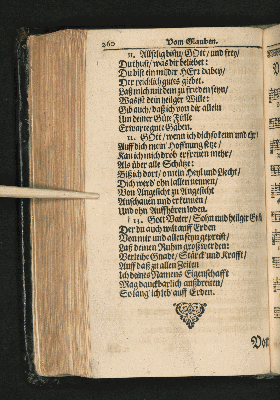 260 Vom Glauben.
11. Allselig bistu/ GOtt/ und frey/
Du thust/ was dir beliebet:
Du bist ein milder HErr dabey/
Der reichlich gutes giebet.
Laß mich mit dem zu frieden seyn/
Was ist dein heilger Wille:
Gib auch/ daß ich von dir allein
Un deiner Güte Fülle
Erwarte gute Gaben.
12. GOtt/ wenn ich dich so kenn und ehr/
Auff dich mein Hoffnung setze/
Kan ich mich drob erfreuen mehr/
Als über alle Schätze:
Biß ich dort/ o mein Heyl und Liecht/
Dich werd' ohn fallen nennen/
Von Angesicht zu Angesicht
Anschauen und erkennen/
Und ohn Auffhören loben.
13. Gott Vater/ Sohn und heilger
Der du auch wilt auff Erden
Von mir und allen seyn gepreist/
Laß deinen Ruhm groß werden:
Verleihe Gnade/ Stärck und Krafft/
Auff daß zu allen Zeiten
Ich deines Namens Eigenschafft
Mag danckbarlich ausbreiten/
So lang' ich leb' auff Erden.